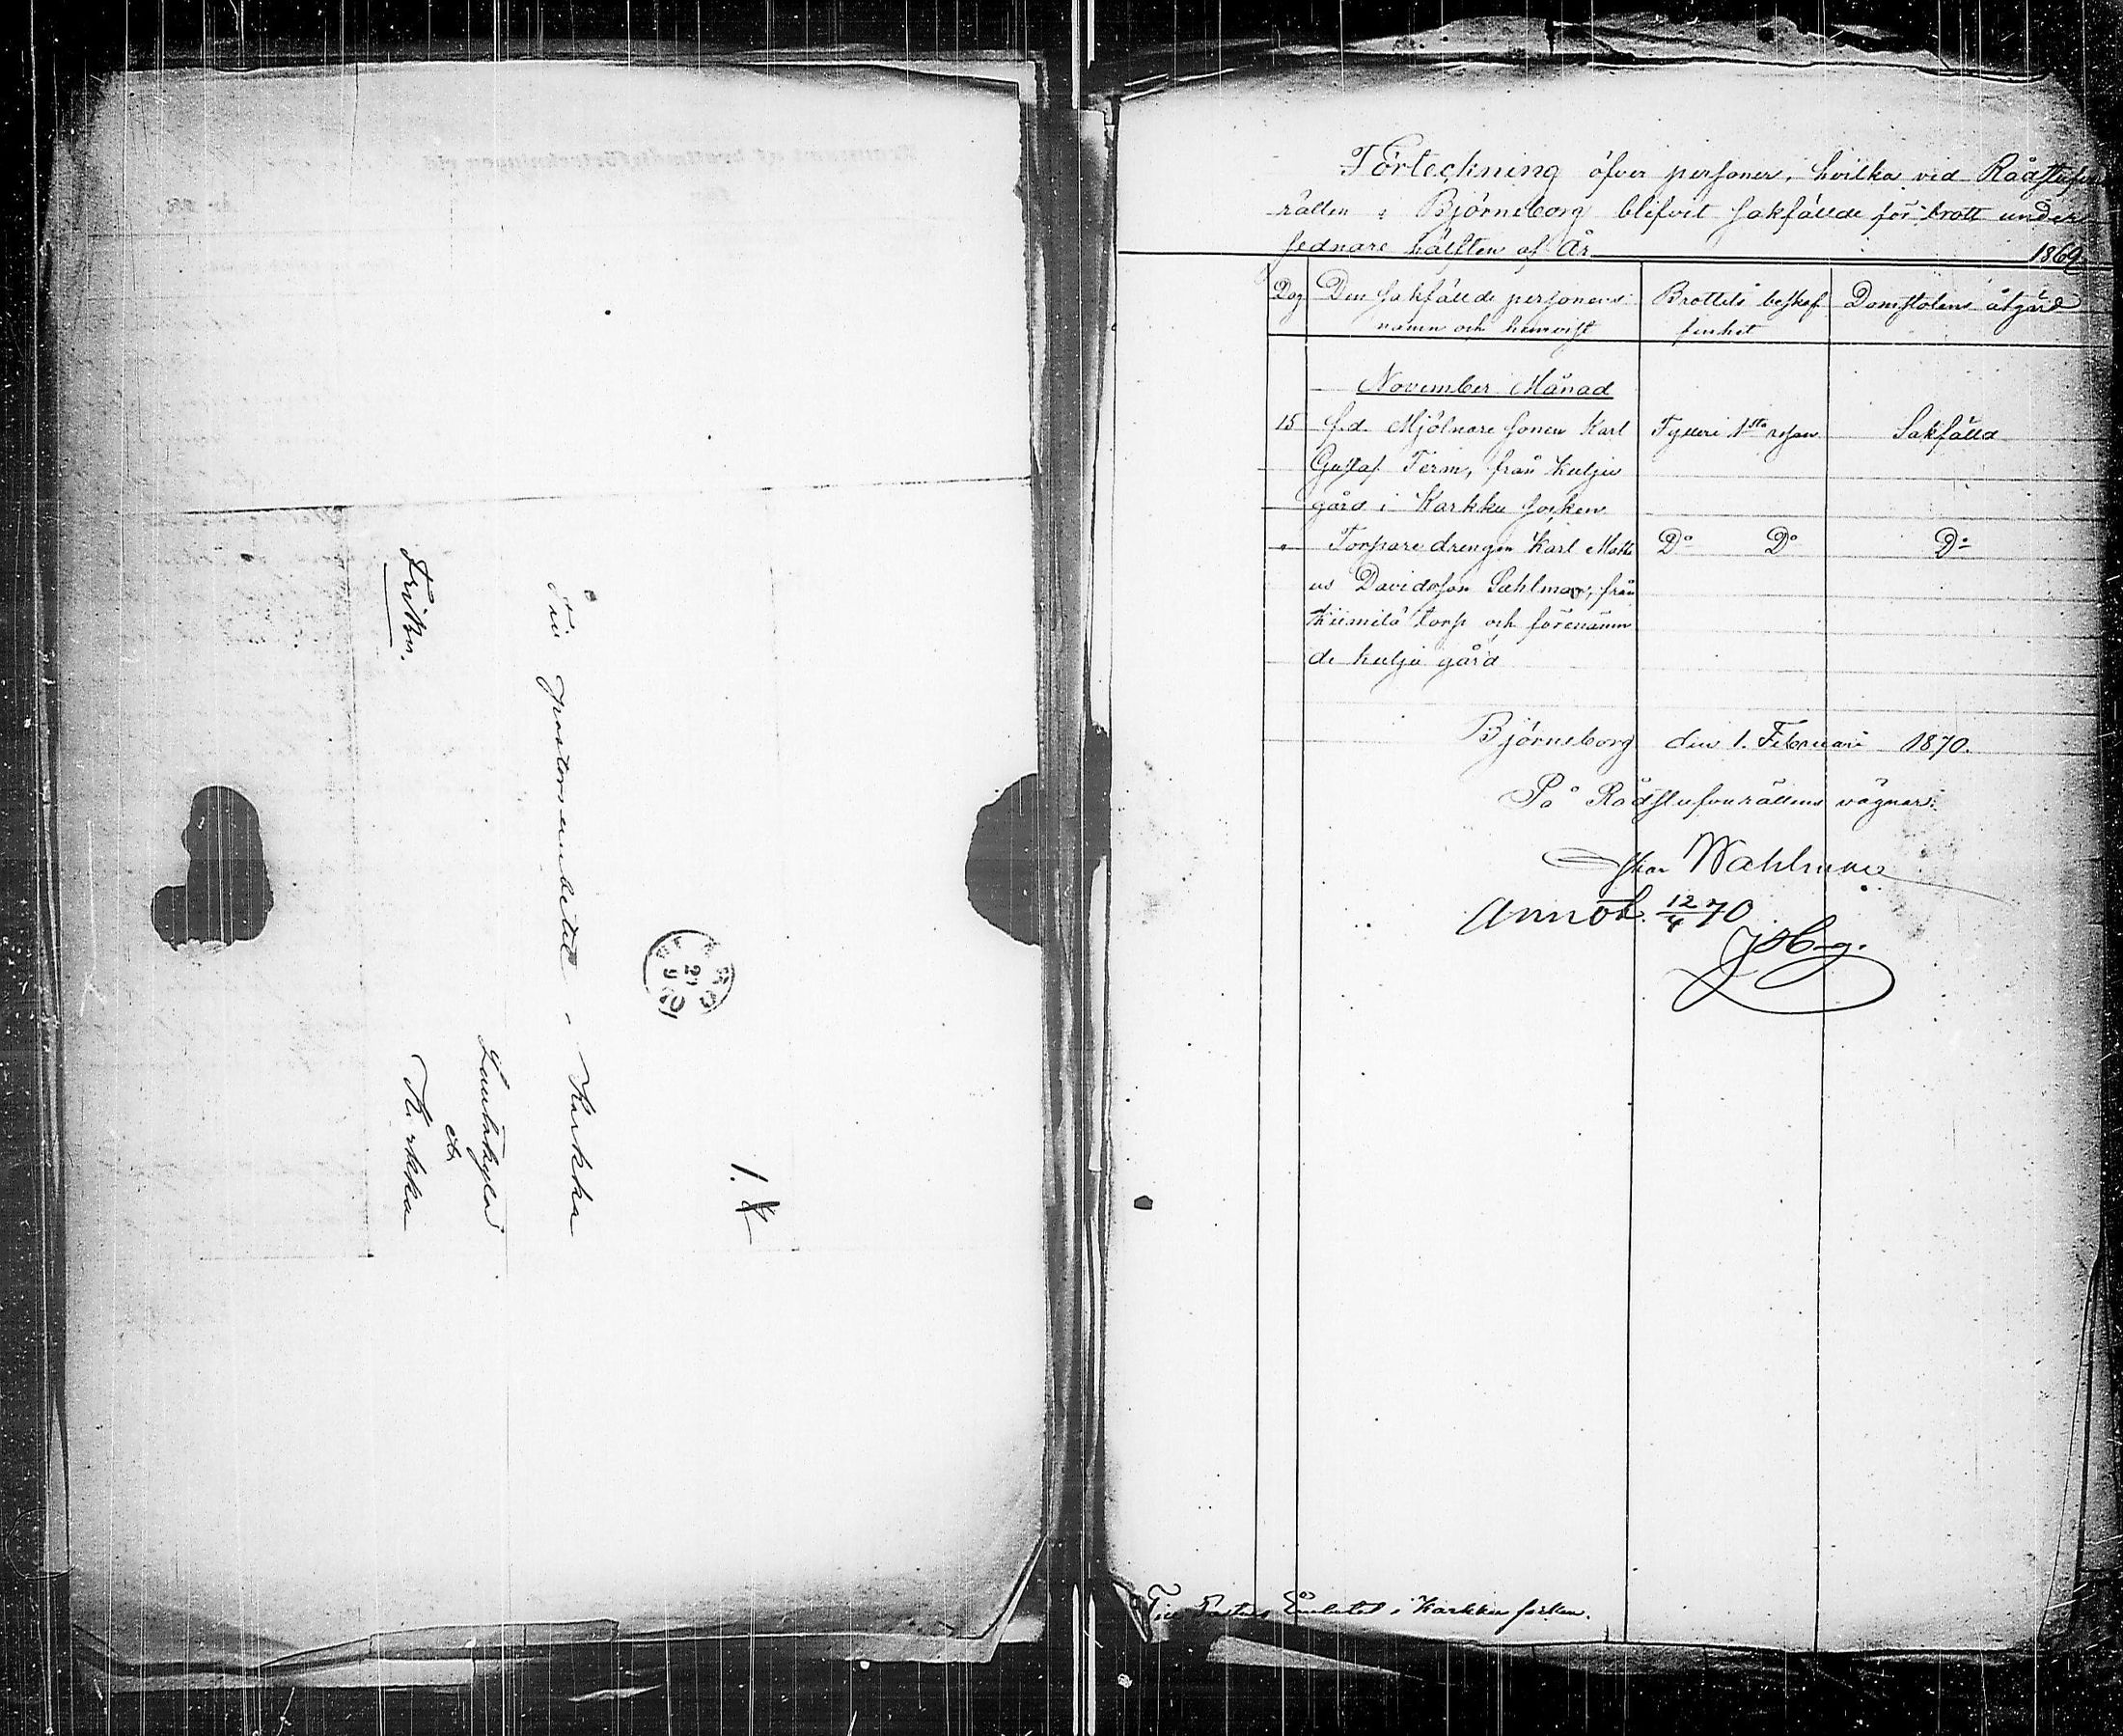 Fribr.
Till pastorsembetet i Karkku
Lauttakylä
&
Karkku
Förteckning öfver personer, hvilka vid Rådstufvu
rätten i Björneborg blifvit sakfällde för brott under
sednare hälften af År 1869
Dag | Den sakfällde personens | Brottets beskaf | Domstolens åtgärd
namn och hemvist | fenhet
November Månad
15 | f.d. Mjölnare sonen Karl | Fylleri 1sta resan | Sakfälld
Gustaf Term, från Kulju
gård i Karkku socken
" | Torpare drengen Karl Matte | Do Do | Do
us Davidsson Sahlman, från
Kiimilä torp och förenämn
de Kulju gård
Björneborg den 1. Februari 1870.
På Rådstufvurättens vägnar:
Wahlman
Annot. 12/4 70
Till Pastors Embetet i Karkku socken.